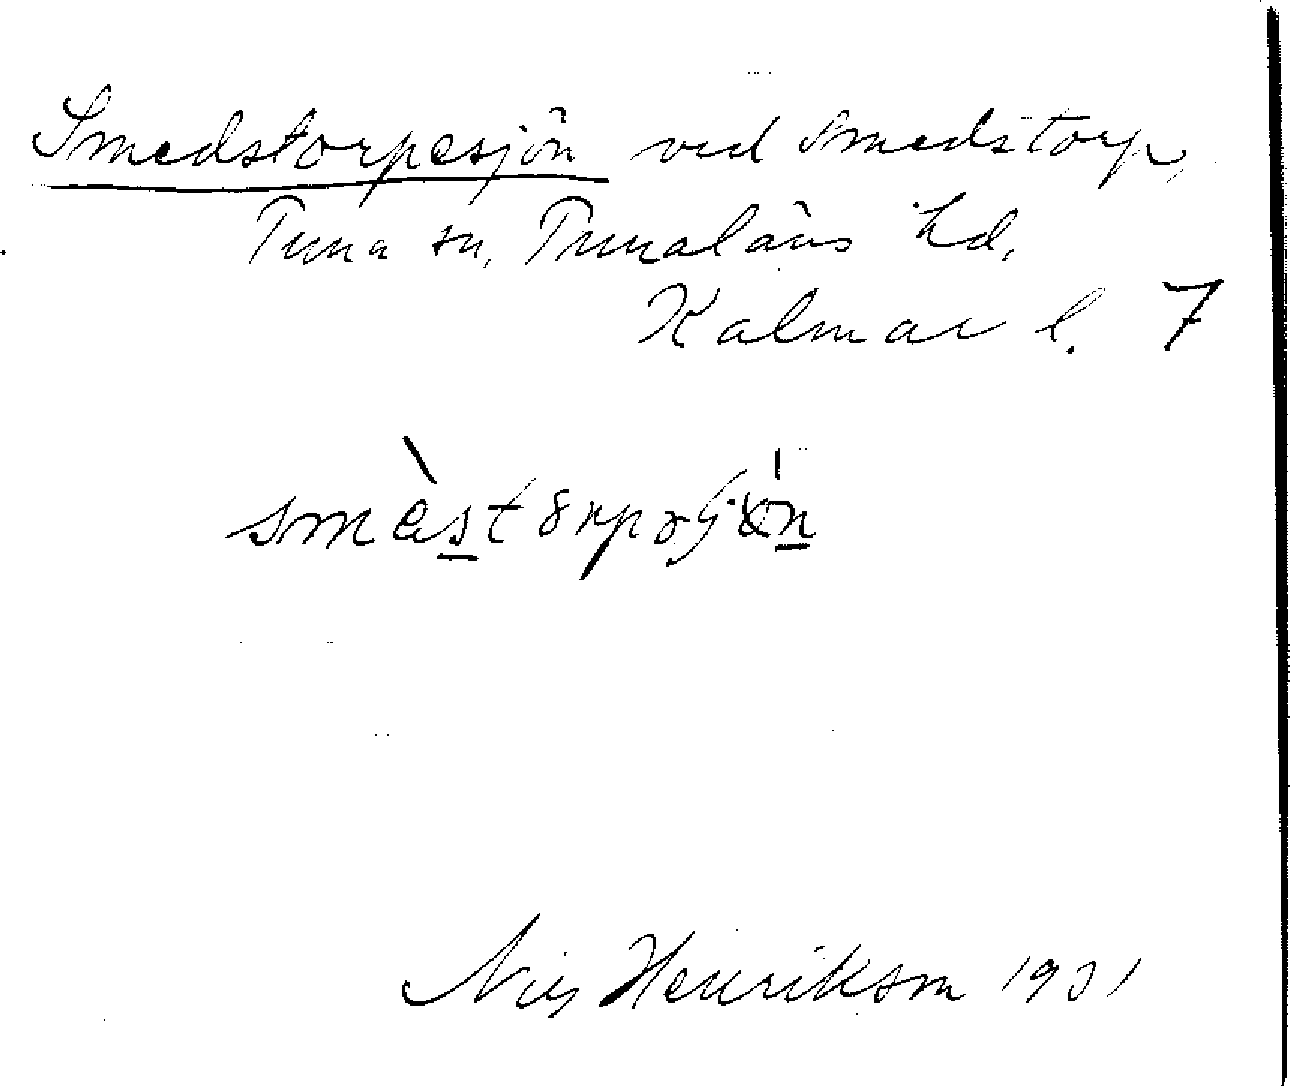 Smedstorpesjön ved Smedstorp,
Tuna sn, Tunaläns hd,
Kalmar l. 7
Nils Henrikson 1931